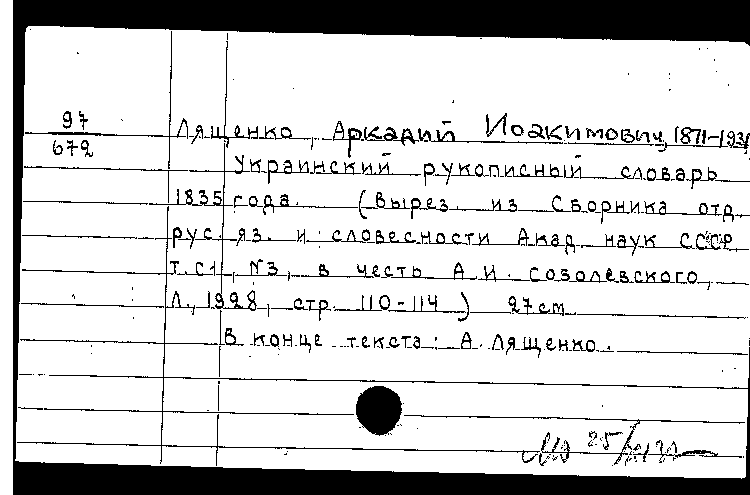 97
672
Лященко, Аркадий Иоакимович, 1871-1931
Украинский рукописный словарь
1835 года. (Вырез. из Сборника отд.
рус. яз. и словесности Акад. наук СССР.
т. C1, N3, в честь А.И. Соболевского,
Л., 1928, стр. 110-114) 27 см.
В конце текста: А. Лященко.